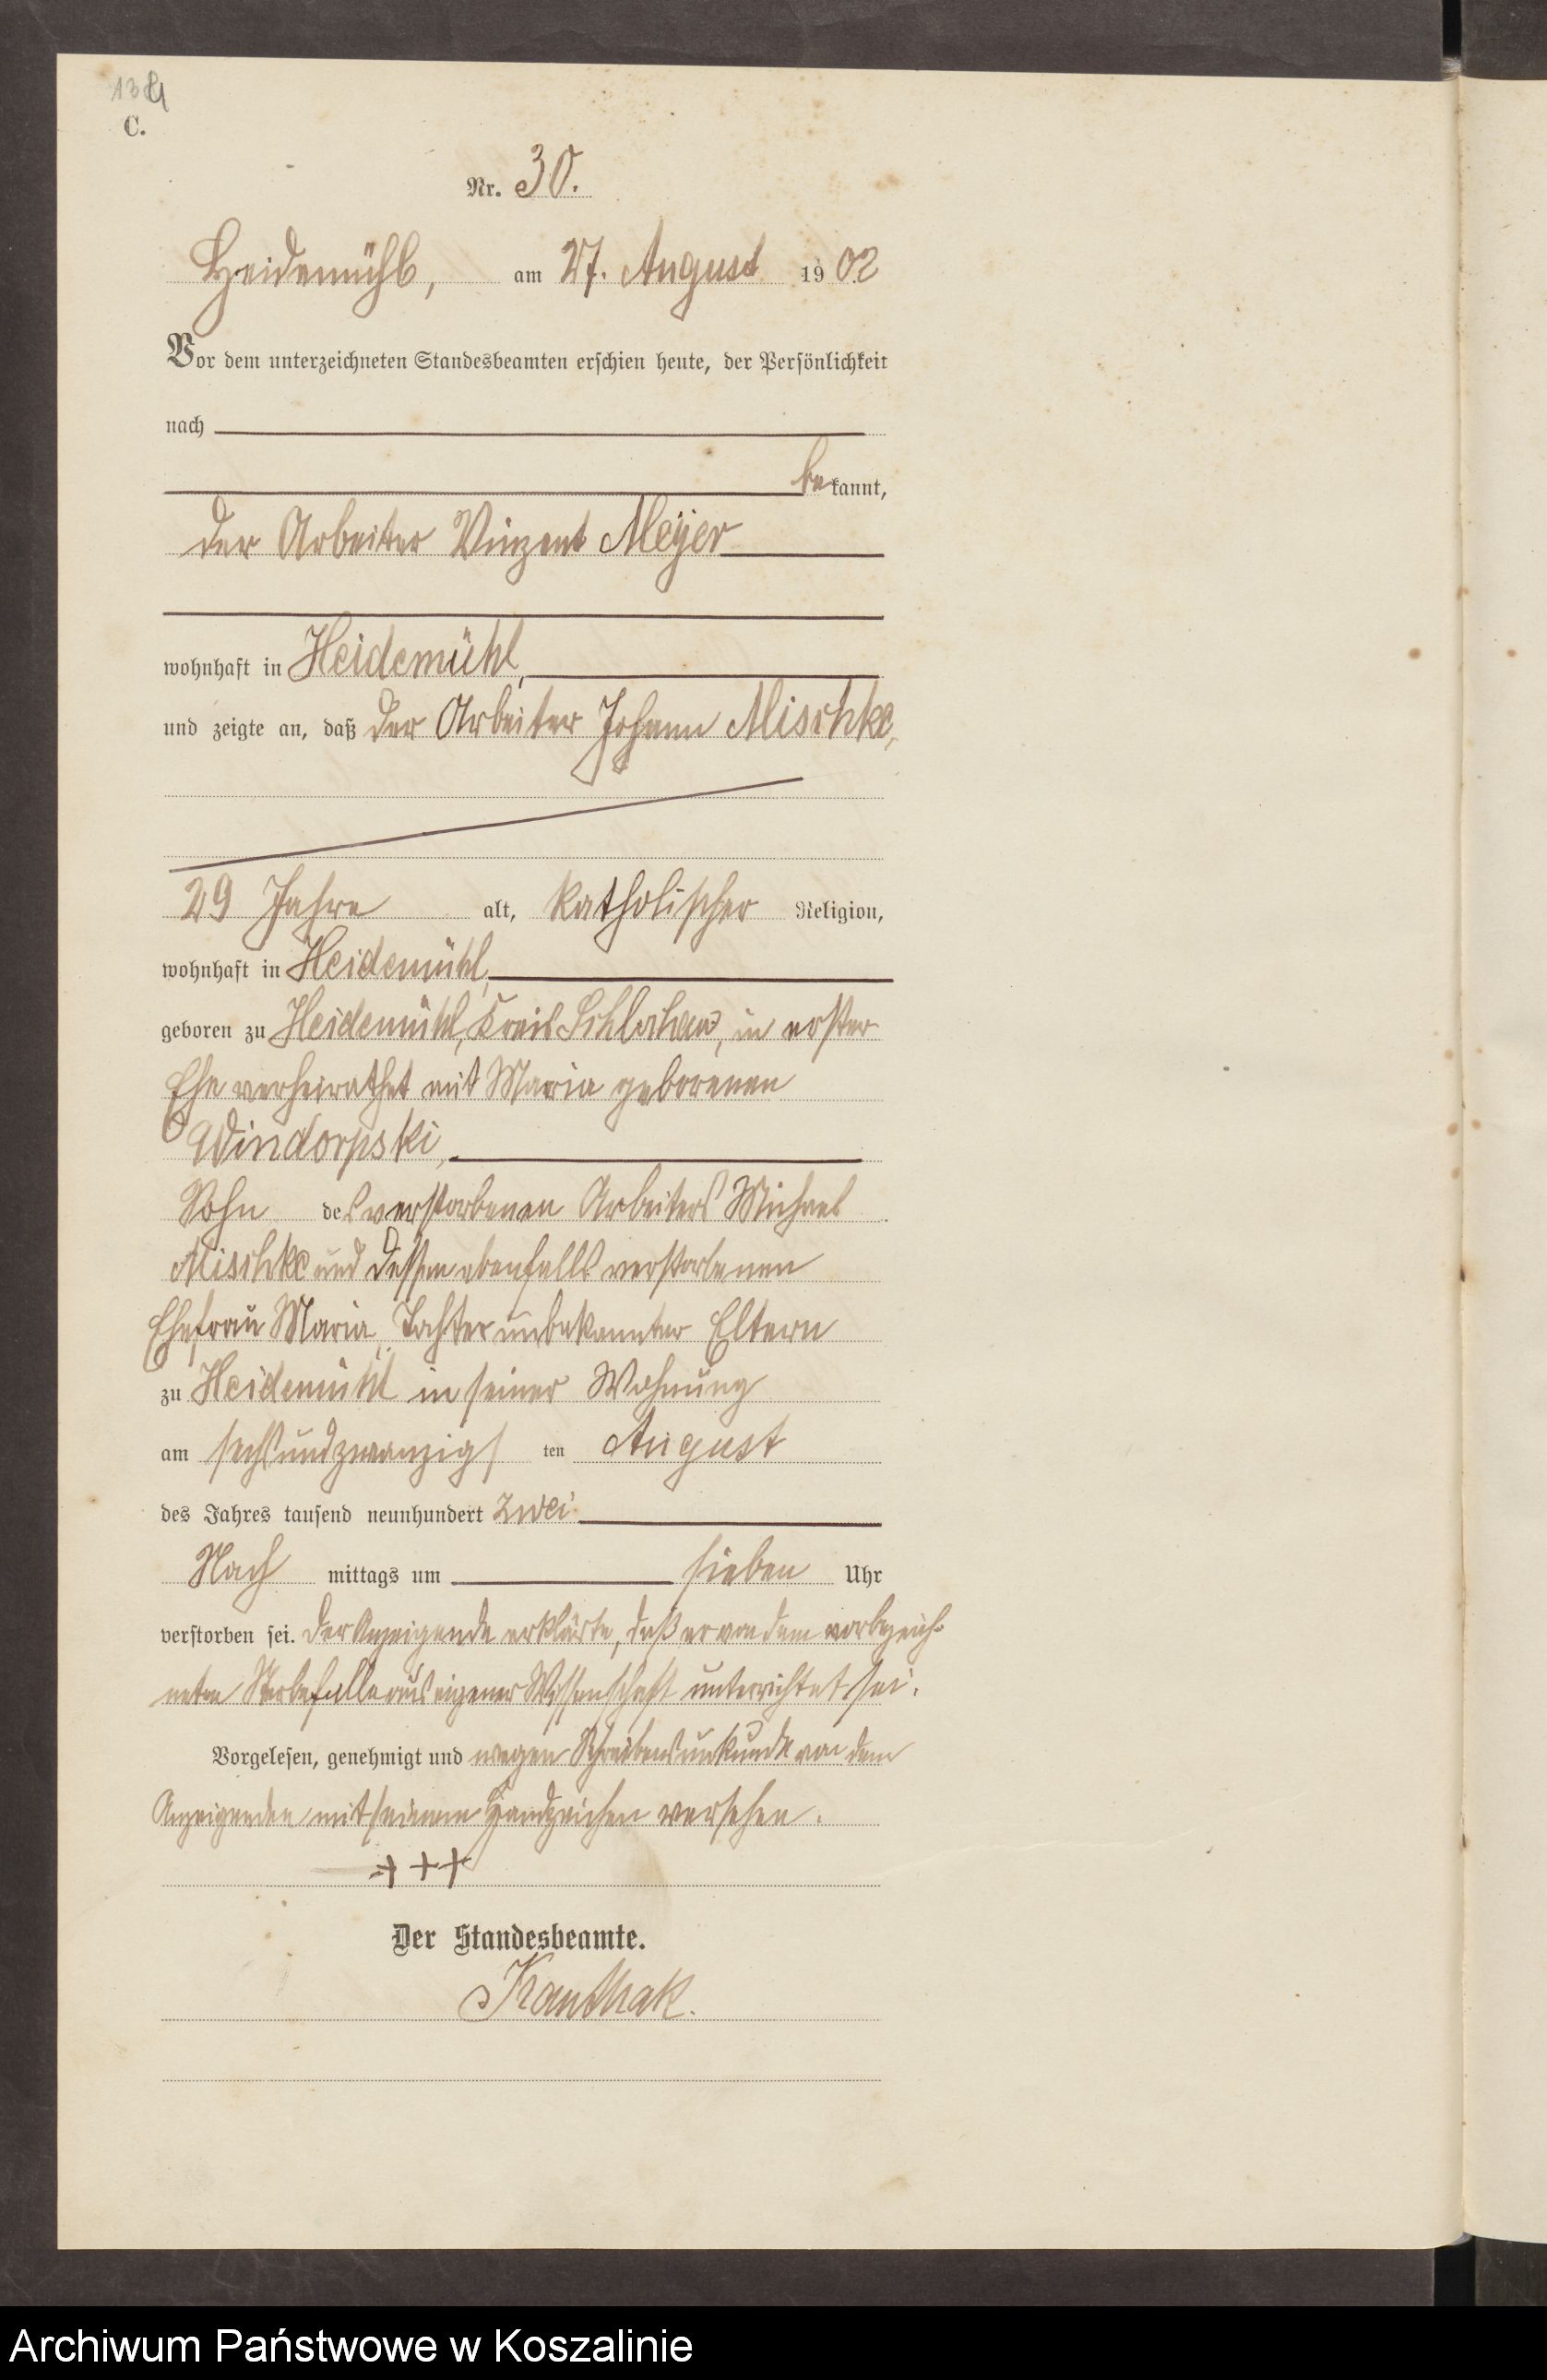 C.
Nr. 30.
Heidemühl, am 27. August 1902
Vor dem unterzeichneten Standesbeamten erschien heute, der Persönlichkeit
nach
bekannt,
der Arbeiter Vinzent Meyer
wohnhaft in Heidemühl,
und zeigte an, daß der Arbeiter Johann Mischke,
29 Jahre alt, katholischer Religion,
wohnhaft in Heidemühl,
geboren zu Heidemühl, Kreis Schlochau, in erster
Ehe verheirathet mit Maria geborenen
Windorpski,
Sohn des verstorbenen Arbeiters Michael
Mischke und dessen ebenfalls verstorbenen
Ehefrau Maria, Tochter unbekannter Eltern
zu Heidemühl in seiner Wohnung
am sechsundzwanzigsten August
des Jahres tausend neunhundert zwei
Nachmittags um sieben Uhr
verstorben sei. Der Anzeigende erklärte, daß er von dem vorbezeich-
neten Sterbefalle aus eigener Wissenschaft unterrichtet sei.
Vorgelesen, genehmigt und wegen Schreibensunkunde von dem
Anzeigenden mit seinem Handzeichen versehen.
+++
Der Standesbeamte.
Kanthak.
Archiwum Państwowe w Koszalinie